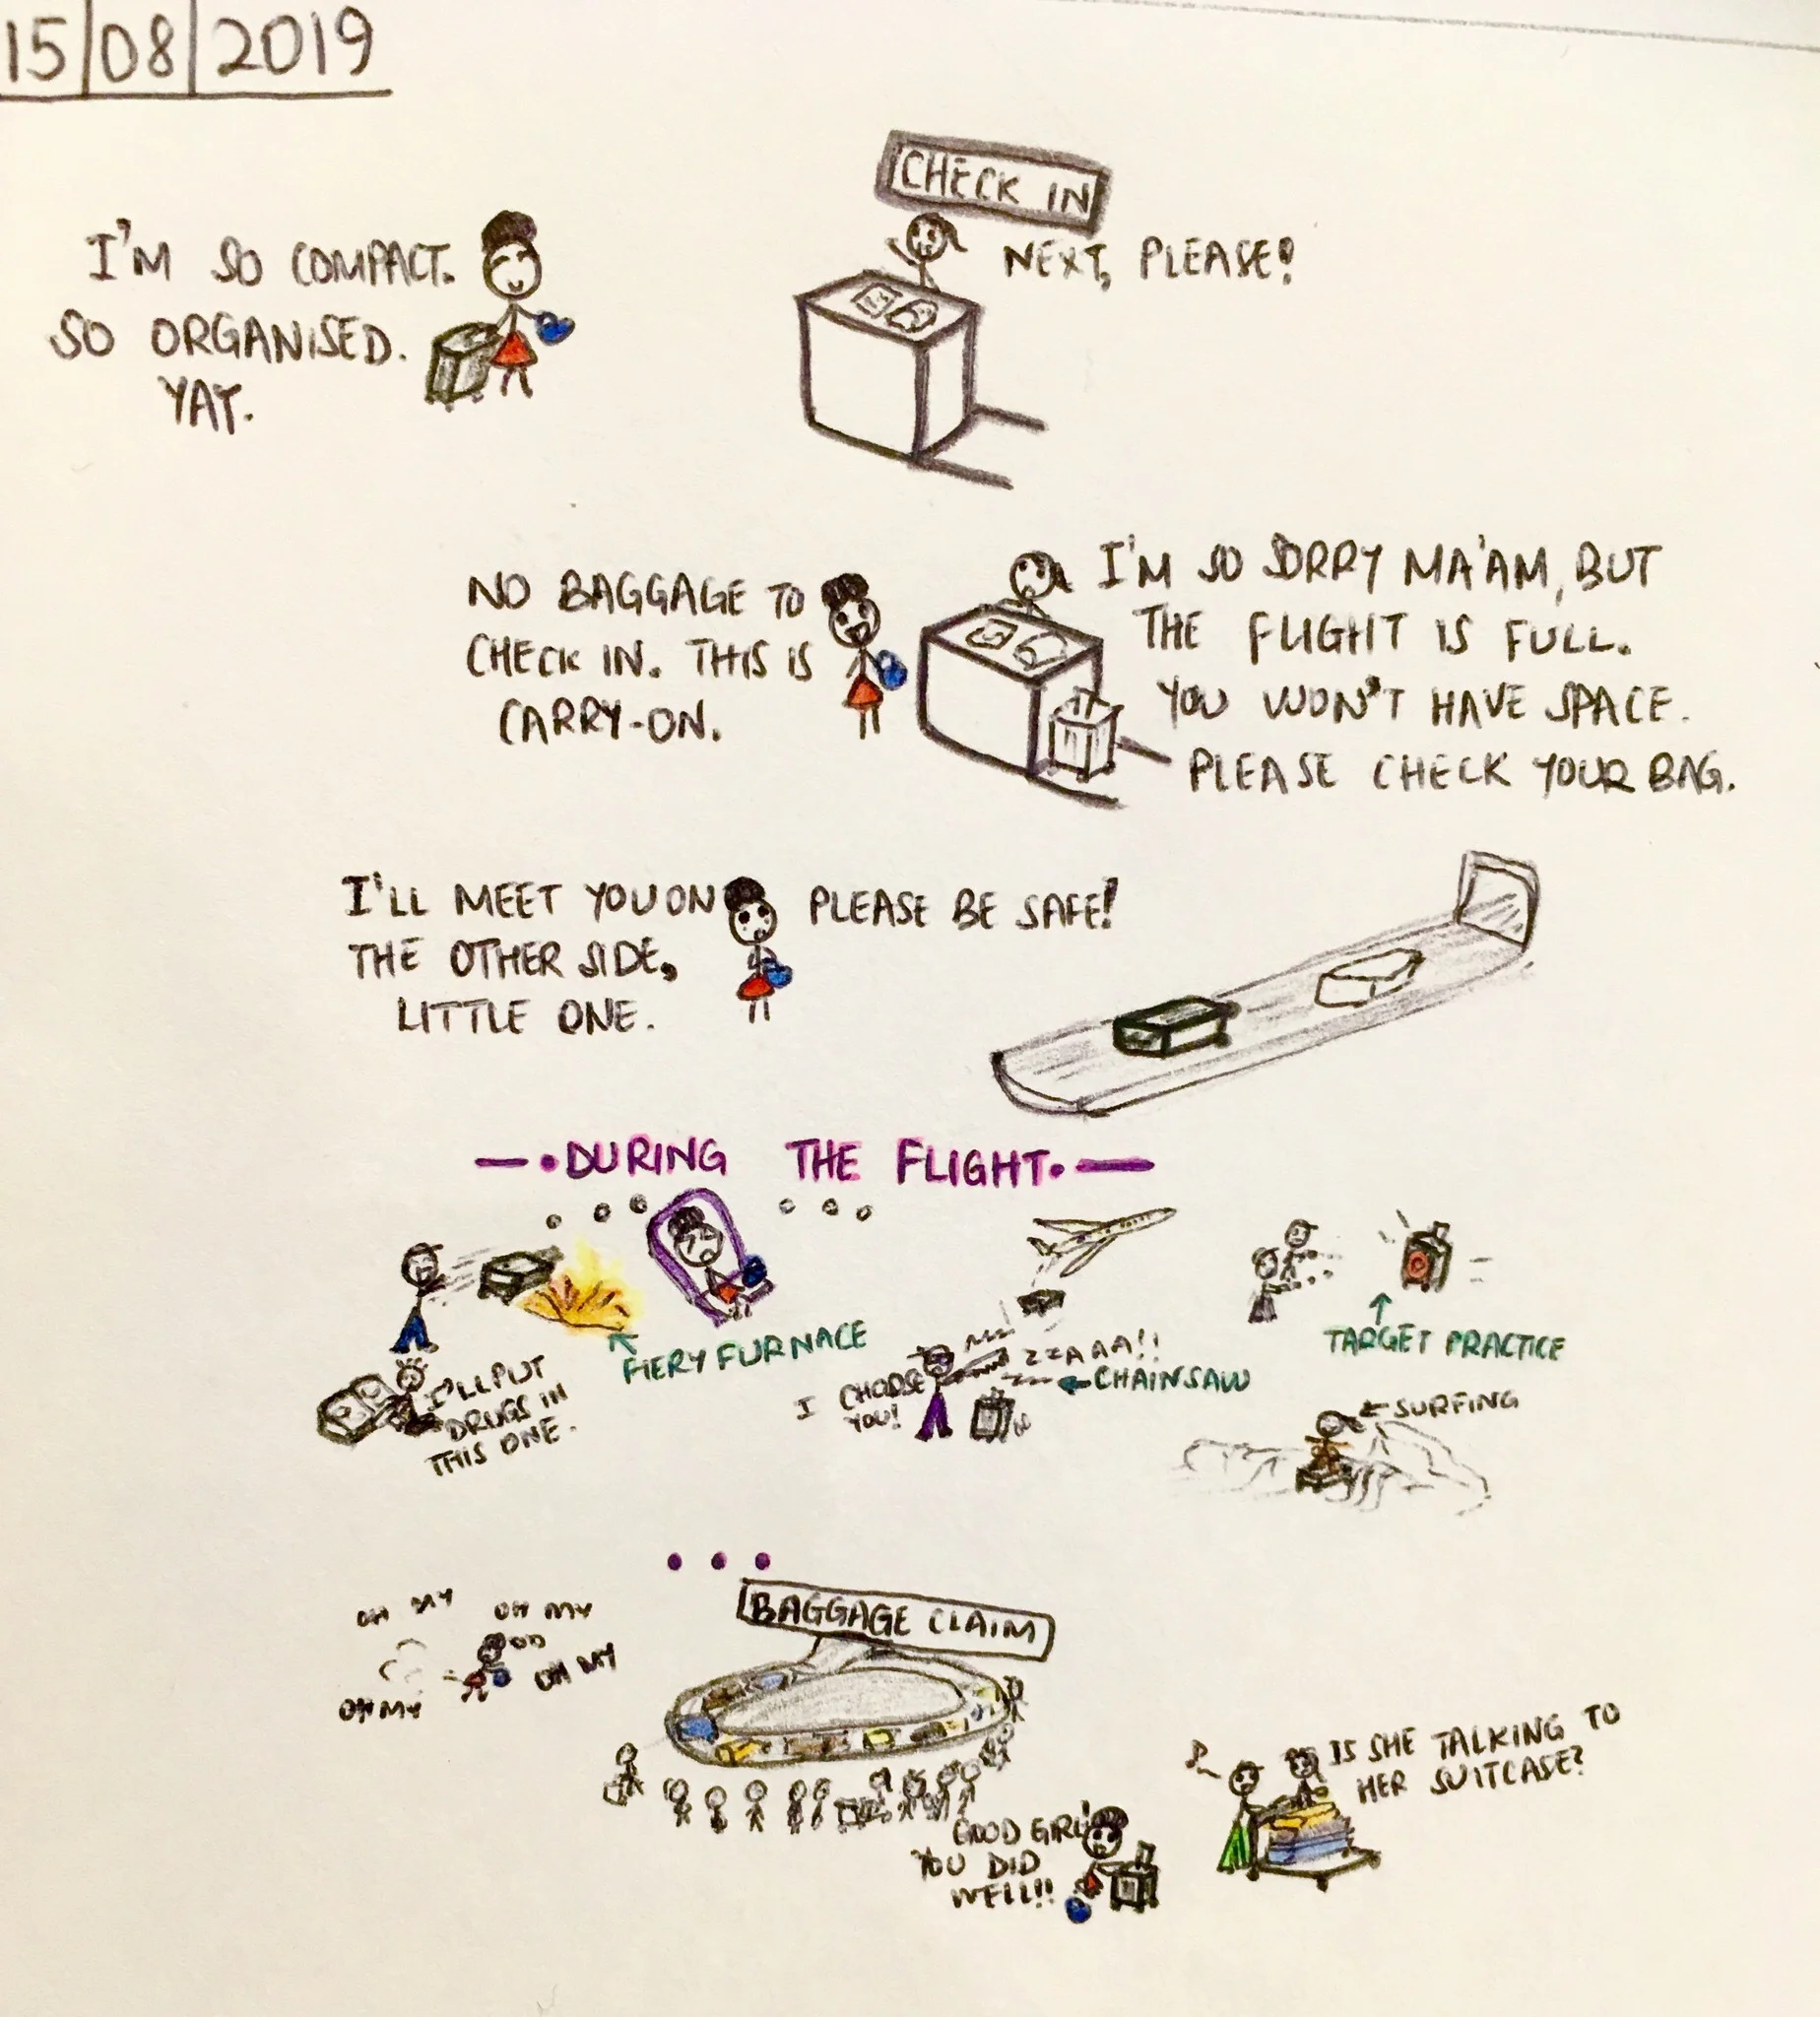 15|08|2019
CHECK IN
I'M SO COMPACT.
SO ORGANISED.
YAY.
NEXT, PLEASE!
NO BAGGAGE TO
CHECK IN. THIS IS
CARRY-ON.
I'M SO SORRY MA'AM, BUT
THE FLIGHT IS FULL.
YOU WON'T HAVE SPACE.
PLEASE CHECK YOUR BAG.
I'LL MEET YOU ON
THE OTHER SIDE,
LITTLE ONE.
PLEASE BE SAFE!
—•DURING THE FLIGHT•—
FIERY FURNACE
I'LL PUT
DRUGS IN
THIS ONE.
I CHOOSE
YOU!
ZZAAA!!
CHAINSAW
TARGET PRACTICE
SURFING
...
BAGGAGE CLAIM
OH MY
OH MY
OH MY
OH MY
GOOD GIRL!
YOU DID
WELL!!
IS SHE TALKING TO
HER SUITCASE?